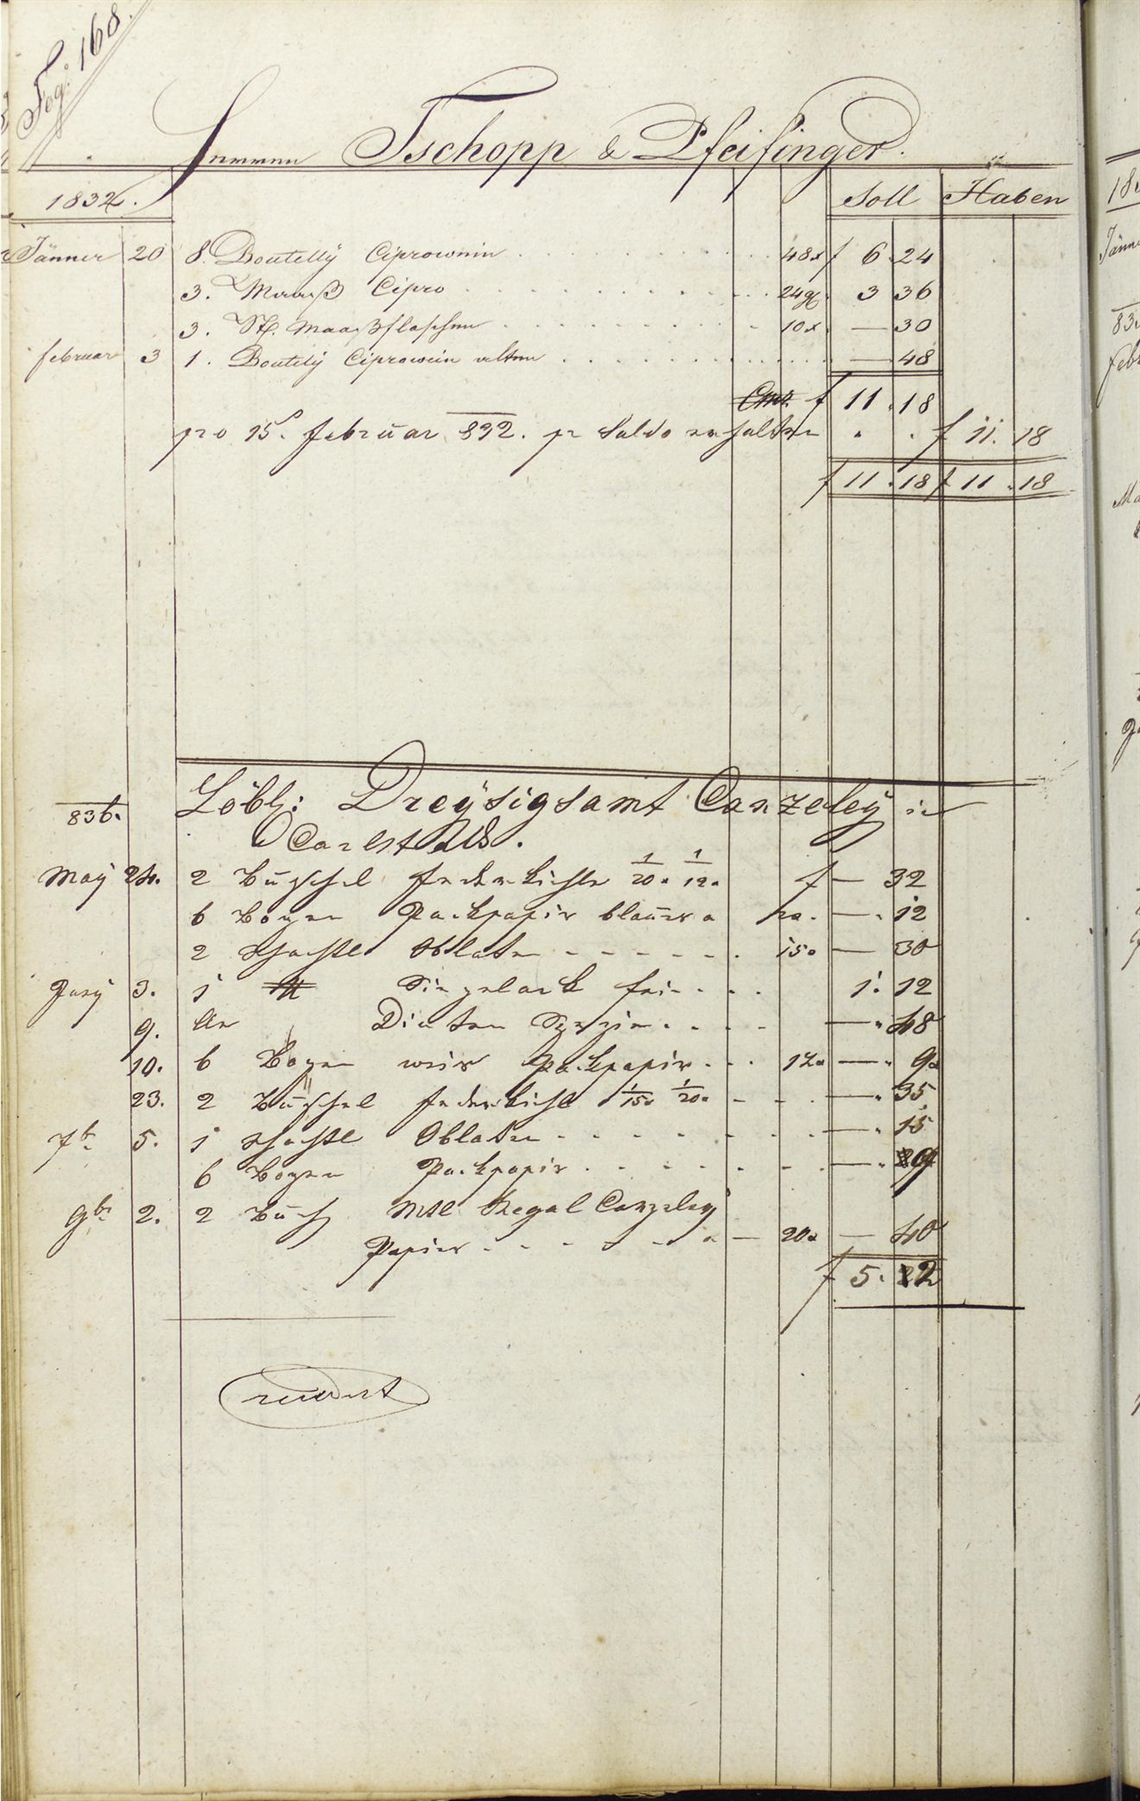 Fog: 168.
Herren Tschopp & Pfeifinger.
1832. Soll Haben
Jänner 20 8. Boutelly Ciprowein 48x f 6. 24
3. Maaß Cipro 3 36
3. St. Maaßflaschen 10x — 30
februar 3 1. Boutely Ciprowein alten — 48
f 11. 18
pro 15. februar 832. pr Saldo erhalten f 11. 18
f 11. 18 f 11. 18
836. Löbl: Dreÿsigsamt Canzeleÿ in
Carlstadt.
Maÿ 24. 2 Büschel Federkiehle 1/20. 1/12. f — 32
6 Bogen Packpapir blauer a 2x. — 12
2 Schachtl Oblaten 15. — 30
3. 1 Siegelack fein 1. 12
9. An Dinten — 48
10. 6 Bogen weis Packpapir — 9
23. 2 Büschel Federkiehl 1/15. 1/20. — 35
7br 5. 1 Schachtl Oblaten — 15
6 Bogen Packpapir —
9br 2. 2 Buch Mtl Regal Canzeleÿ
Papier a — 20x — 40
f 5.